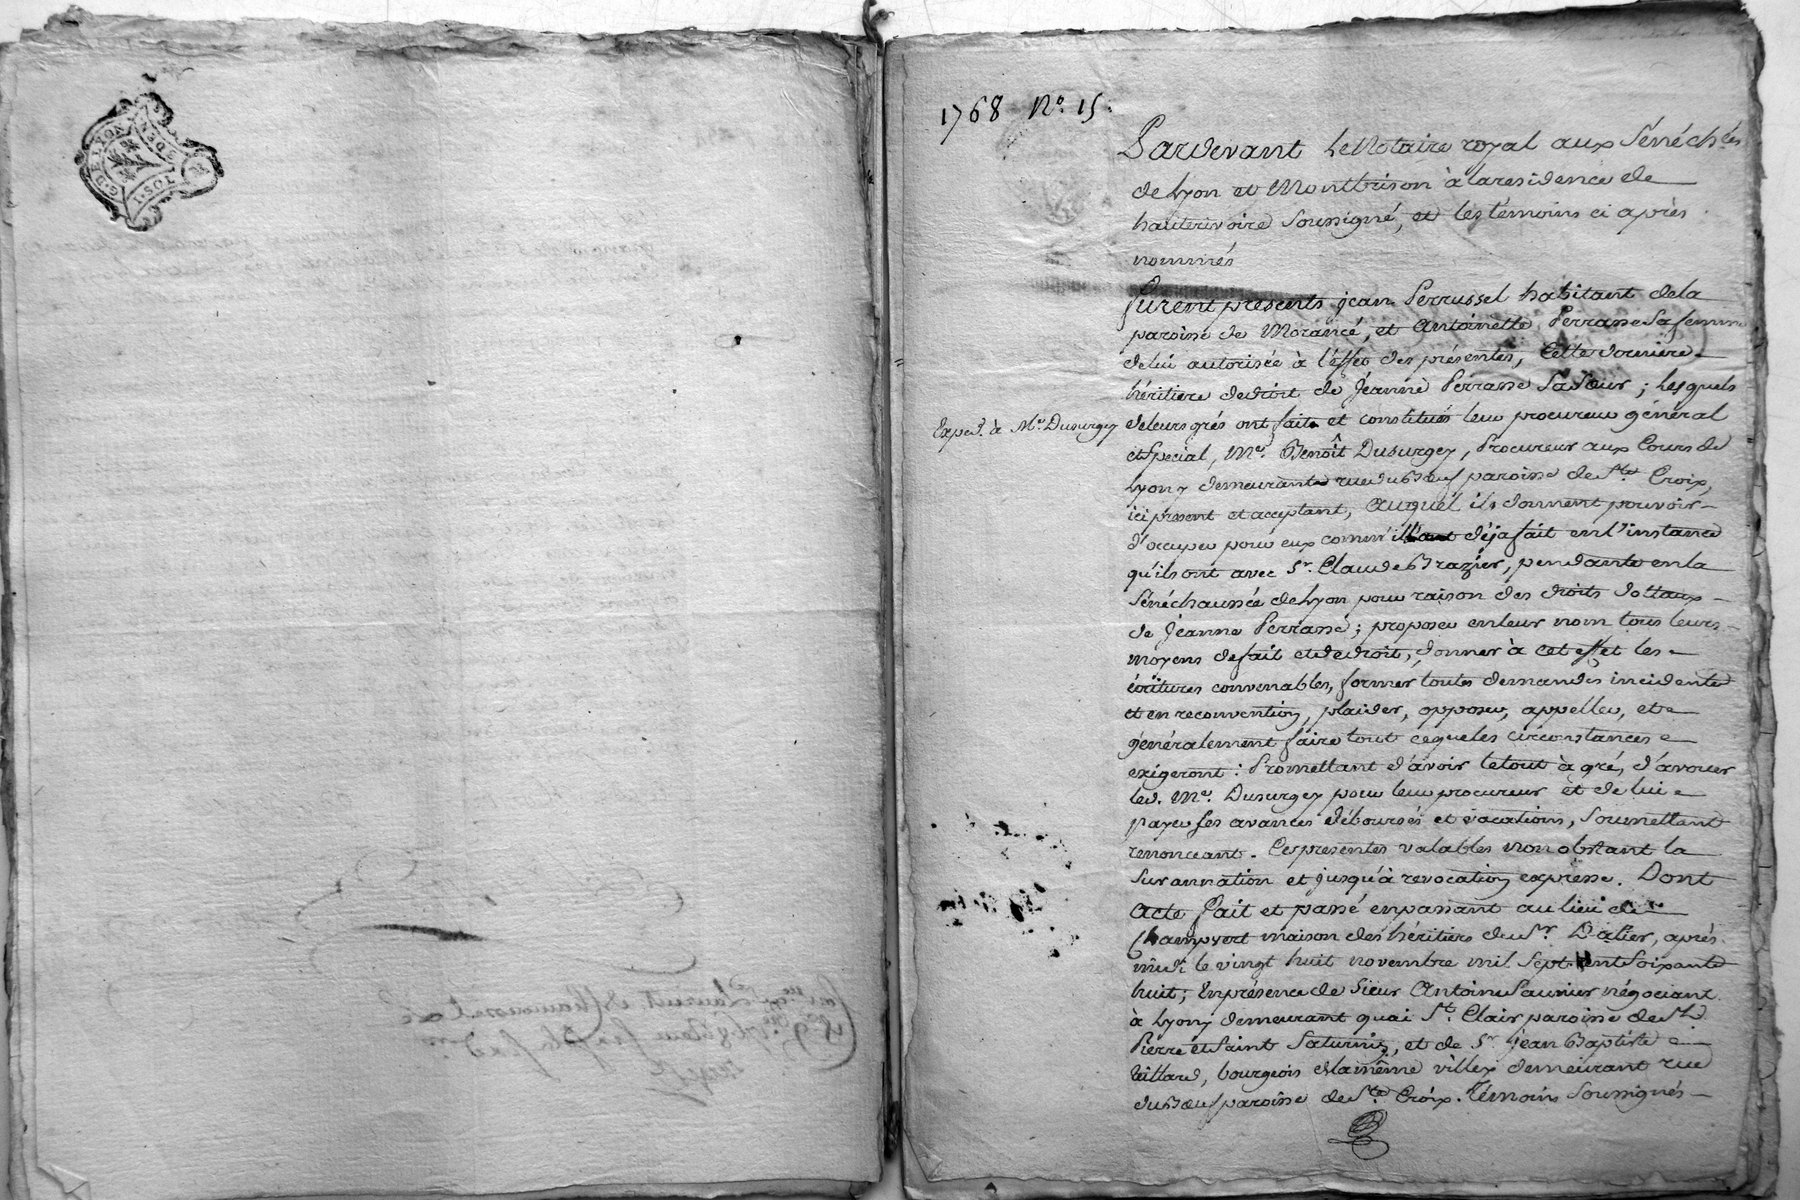 G. DE LYON
1. SOL
1768 No. 15.
Pardevant le Notaire royal aux Sénéchées
de Lyon et Montbrison à la residence de
hauterivoire soussigné, et les témoins ci après
nommés
furent presents jean Perrussel habitant de la
paroisse de Morancé, et Antoinette Perrasse sa femme
de lui autorisée à l'effet des présentes, Cette derniere
héritiere de droit de Jeanne Perrasse sa sœur ; lesquels
Exped. à Me. Dusurgey
de leurs grés ont fait et constitués leur procureur général
et special, Me. Benoît Dusurgey, Procureur aux Cours de
Lyon y demeurant rue du Bœuf paroisse de Ste. Croix,
ici présent et acceptant, Auquel ils donnent pouvoir
d'occuper pour eux comm'il déja fait en l'instance
qu'ils ont avec Sr. Claude Brazier, pendante en la
Sénéchaussée de Lyon pour raison des droits dottaux
de Jeanne Perrasse ; proposer en leur nom tous leurs
moyens de fait et de droit, donner à cet effet les
écritures convenables, former toutes demandes incidentes
et en reconvention, plaider, opposer, appeller, et
généralement faire tout ce que les circonstances
exigeront : Promettant d'avoir le tout à gré, d'avouer
led. Me. Dusurgey pour leur procureur et de lui
payer ses avances déboursés et vacations, Soumettant
renonceant. Ces presentes valables non obstant la
surannation et jusqu'à revocation expresse. Dont
Acte fait et passé en passant au lieu de
Champvert maison des héritiers du Sr. Dalier, après
midi le vingt huit novembre mil sept cent soixante
huit ; En présence de Sieur Antoine Saunier négociant
à Lyon y demeurant quai St. Clair paroisse de St.
Pierre et Saint Saturnin, et de Sr. jean Baptiste
Tillard, bourgeois de la même ville y demeurant rue
du Bœuf paroisse de Ste. Croix. Témoins soussignés